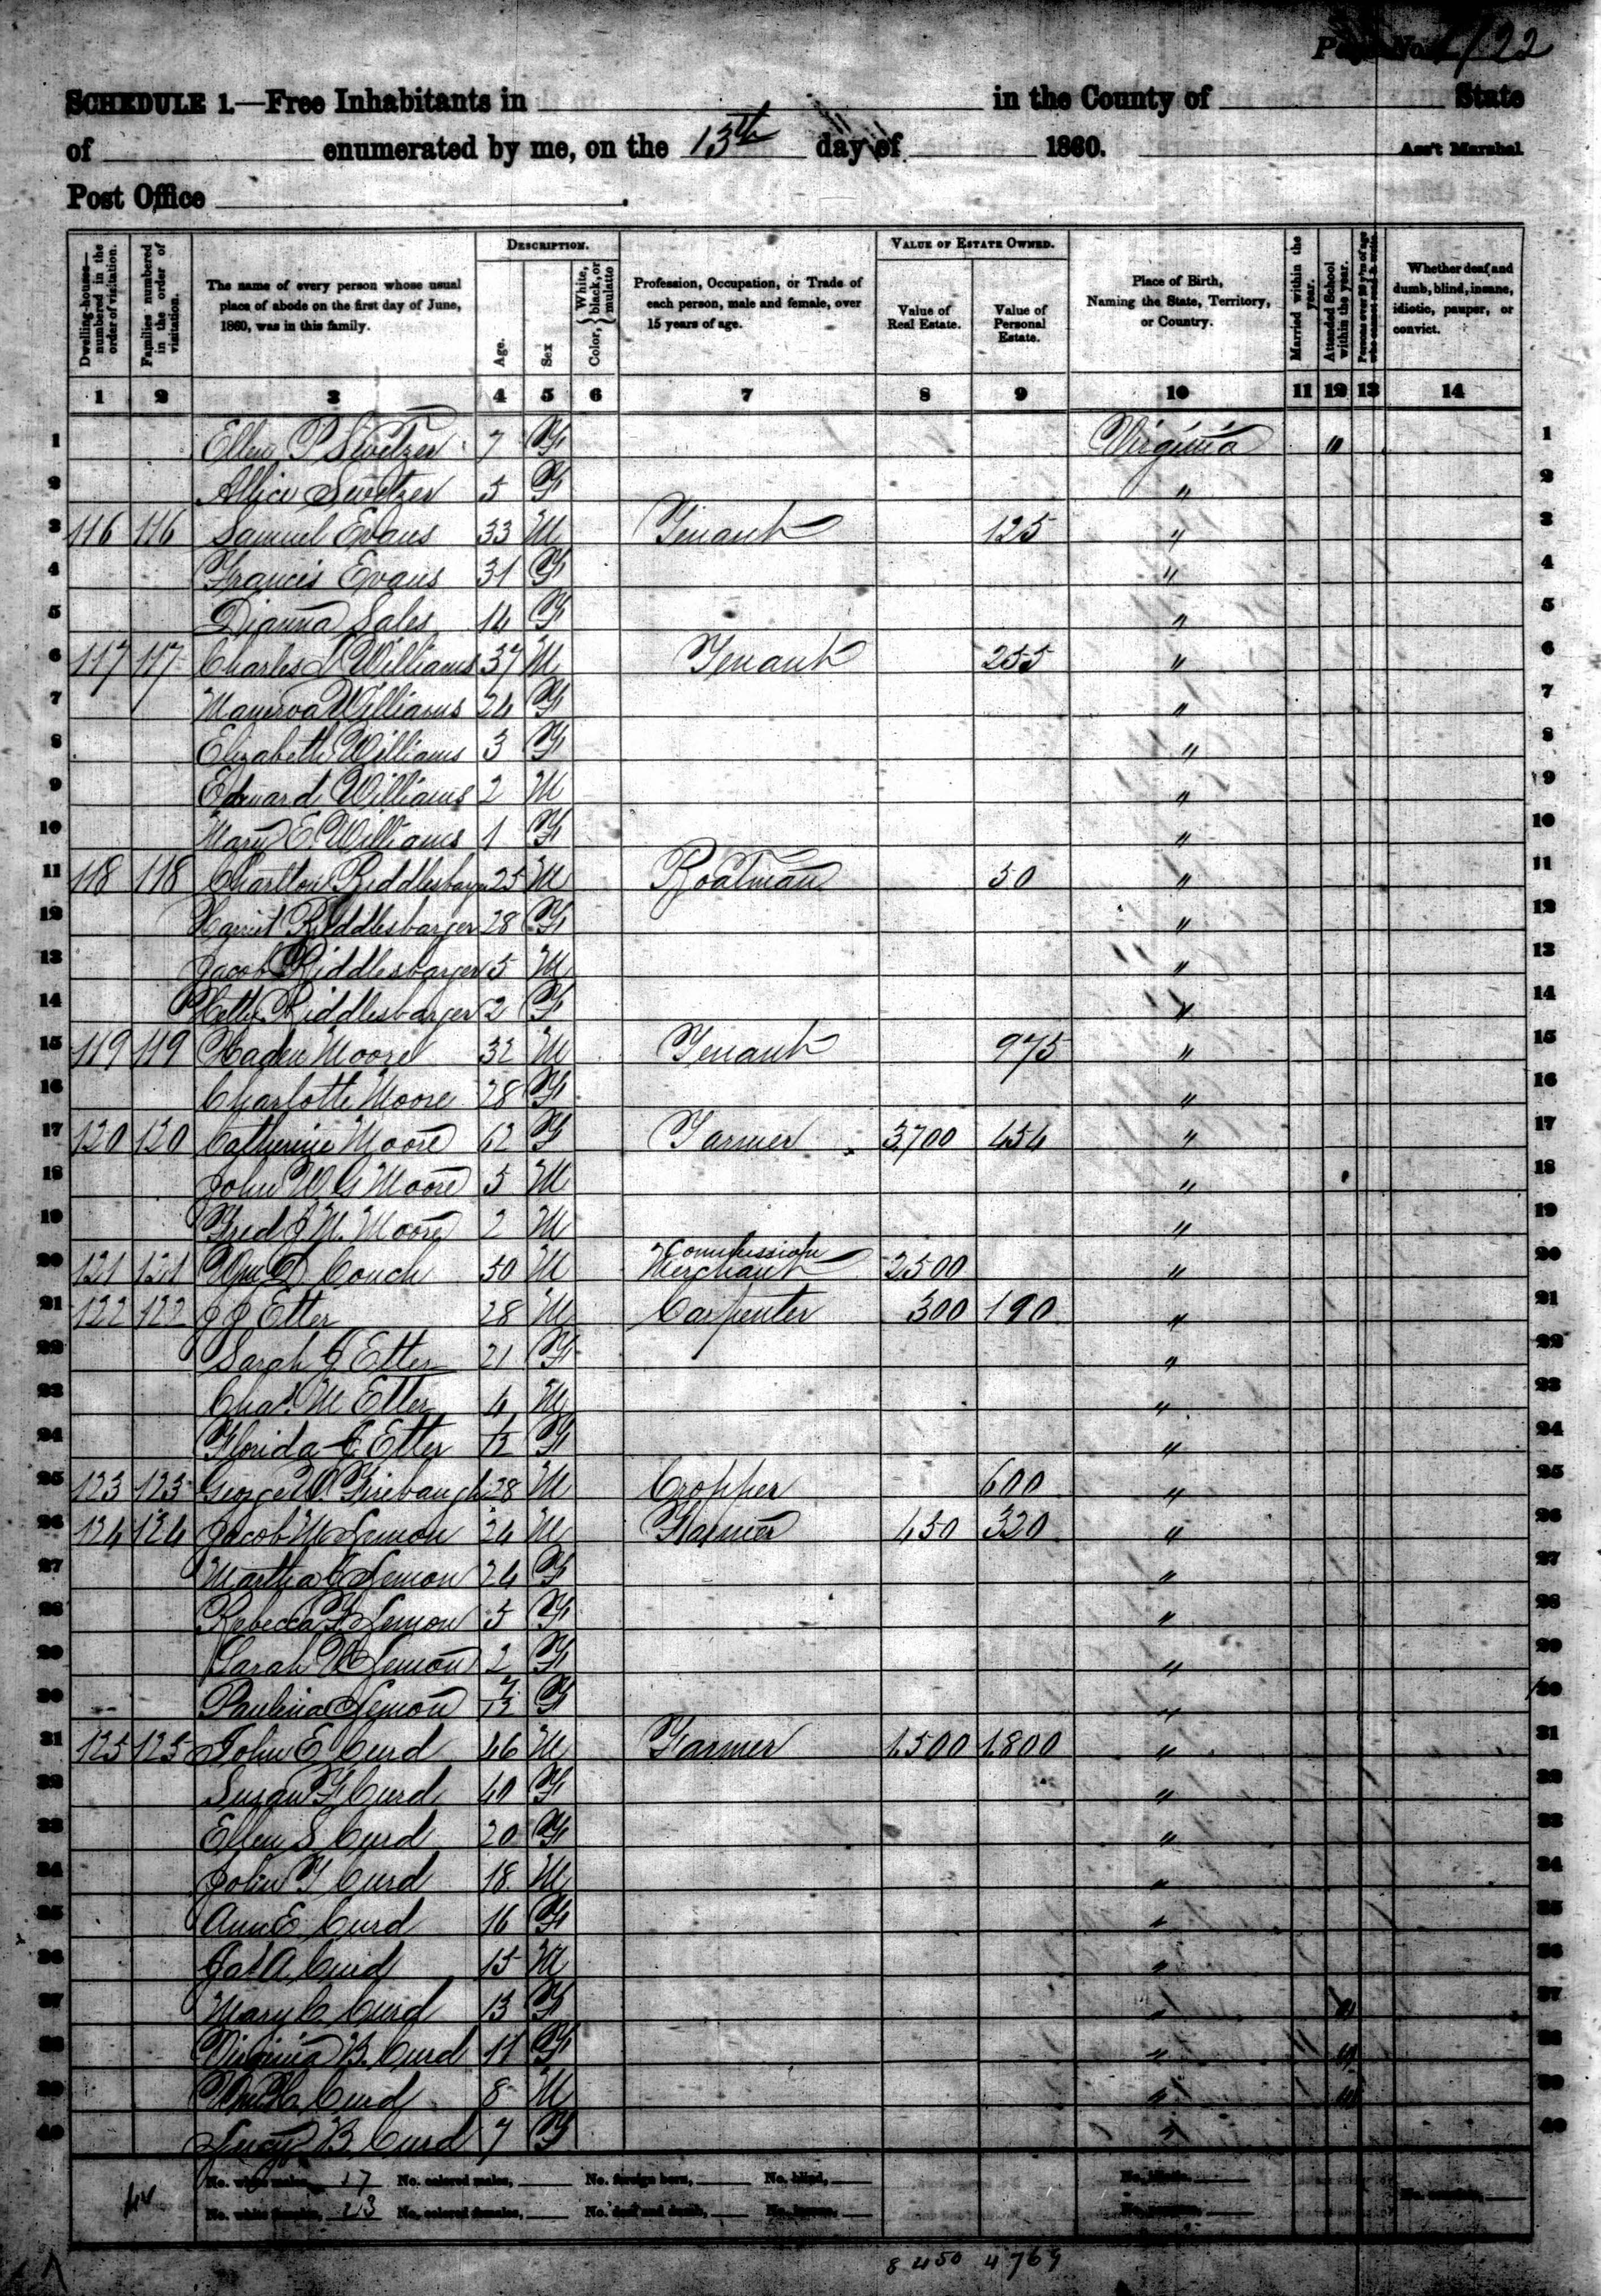 Page No. 122
SCHEDULE 1.—Free Inhabitants in in the County of State
of enumerated by me, on the 13th day of 1860. Ass't Marshal
Post Office .
Dwelling-houses—numbered in the order of visitation.
Families numbered in the order of visitation.
The name of every person whose usual place of abode on the first day of June, 1860, was in this family.
DESCRIPTION.
Age.
Sex
Color, White, black, or mulatto
Profession, Occupation, or Trade of each person, male and female, over 15 years of age.
VALUE OF ESTATE OWNED.
Value of Real Estate.
Value of Personal Estate.
Place of Birth, Naming the State, Territory, or Country.
Married within the year.
Attended School within the year.
Persons over 20 y'rs of age who cannot read & write.
Whether deaf and dumb, blind, insane, idiotic, pauper, or convict.
1 2 3 4 5 6 7 8 9 10 11 12 13 14
1 Ellen P Switzer 7 F Virginia " 1
2 Allice Switzer 5 F " 2
3 116 116 Samuel Evans 33 M Tenant 125 " 3
4 Francis Evans 31 F " 4
5 Dianna Sales 14 F " 5
6 117 117 Charles Williams 37 M Tenant 255 " 6
7 Manerva Williams 24 F " 7
8 Elizabeth Williams 3 F " 8
9 Edward Williams 2 M " 9
10 Mary E. Williams 1 F " 10
11 118 118 Charlton Riddlesbarger 25 M Boatman 50 " 11
12 Harriet Riddlesbarger 28 F " 12
13 Jacob Riddlesbarger 5 M " 13
14 Riddlesbarger 2 F " 14
15 119 119 Haden Moore 32 M Tenant 975 " 15
16 Charlotte Moore 28 F " 16
17 120 120 Catherine Moore 62 F Farmer 3700 454 " 17
18 John W G Moore 5 M " 18
19 Fred J M. Moore 2 M " 19
20 121 121 Wm D Couch 50 M Commission Merchant 2500 " 20
21 122 122 J J Etter 28 M Carpenter 300 190 " 21
22 Sarah J Etter 21 F " 22
23 Chas. M Etter 4 M " 23
24 Florida C Etter F " 24
25 123 123 George W. Firebaugh 28 M Cropper 600 " 25
26 124 124 Jacob M Lemon 24 M Farmer 450 320 " 26
27 Martha J Lemon 24 F " 27
28 Rebecca F Lemon 5 F " 28
29 Sarah Lemon 2 F " 29
30 Paulina Lemon 7/12 F " 30
31 125 125 John E Curd 46 M Farmer 1500 1800 " 31
32 Susan F Curd 40 F " 32
33 Ellen S Curd 20 F " 33
34 John T Curd 18 M " 34
35 Ann E Curd 16 F " 35
36 Jas A Curd 15 M " 36
37 Mary C. Curd 13 F " " 37
38 Virginia B. Curd 11 F " " 38
39 Curd 8 M " " 39
40 Lucy B. Curd 7 F " 40
No. white males, 17 No. colored males, No. foreign born, No. blind, No. idiotic,
No. white females, 23 No. colored females, No. deaf and dumb, No. insane, No. paupers, No. convicts,
8450 4769